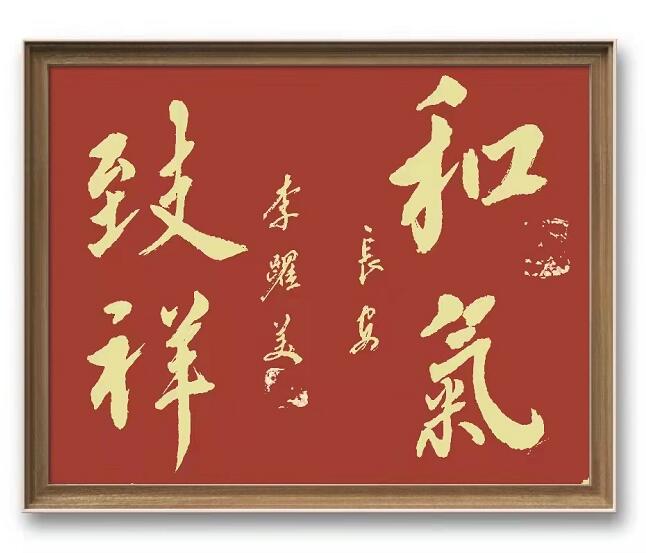 和氣
致祥
長安
李躍美